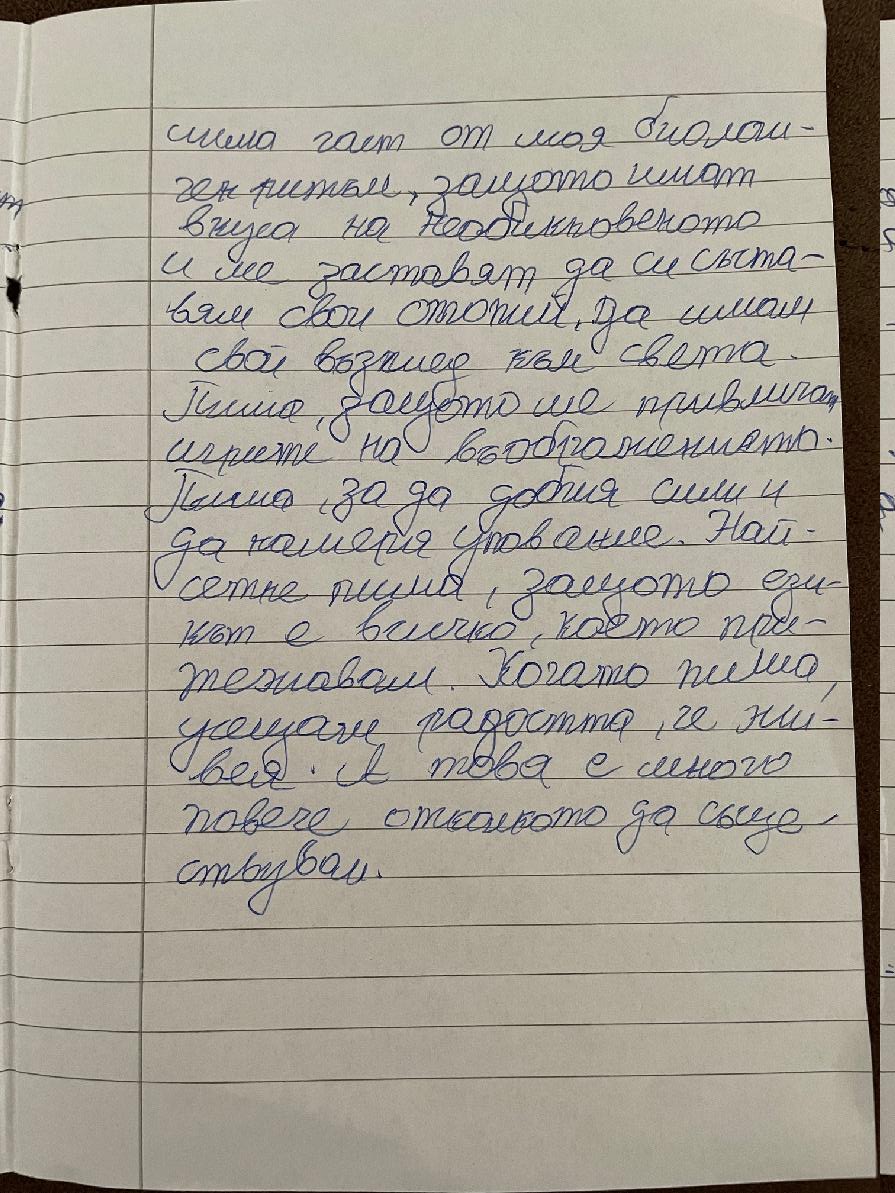 сима част от моя биологи-
чен ритъм, защото имат
вкуса на необикновеното
и ме заставят да си съста-
вям свои утопии, да имам
свой възглед към света.
Пиша, защото ме привличат
игрите на въображението.
Пиша, за да добия сили и
да намеря упование. Най-
сетне пиша, защото ези-
кът е всичко, което при-
тежавам. Когато пиша,
усещам радостта, че жи-
вея. А това е много
повече отколкото да съще-
ствувам.